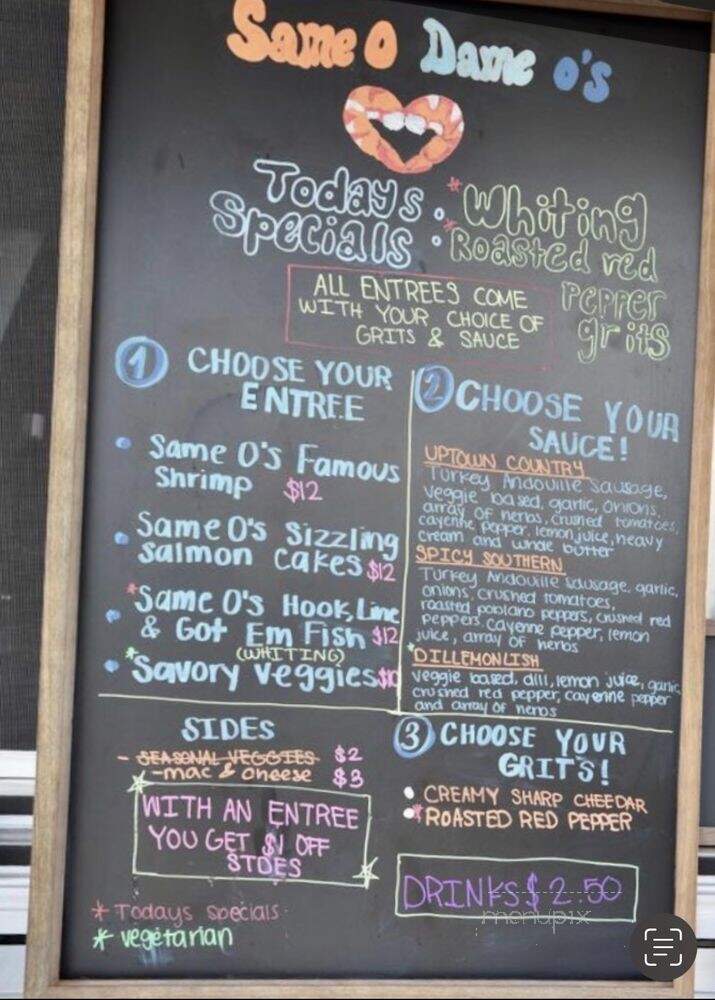 Same O Dame O's
Todays Specials:
*Whiting
*Roasted red
pepper
grits
ALL ENTREES COME
WITH YOUR CHOICE OF
GRITS & SAUCE
1 CHOOSE YOUR
ENTREE
• Same O's Famous
Shrimp $12
• Same O's Sizzling
Salmon Cakes $12
• *Same O's Hook, Line
& Got Em Fish $12
(WHITING)
• *Savory Veggies $10
2 CHOOSE YOUR
SAUCE!
UPTOWN COUNTRY
Turkey Andouille Sausage,
veggie based, garlic, onions,
array of herbs, crushed tomatoes,
cayenne pepper, lemon juice, heavy
cream and whole butter
SPICY SOUTHERN
Turkey Andouille Sausage, garlic,
onions, crushed tomatoes,
roasted poblano peppers, crushed red
peppers, cayenne pepper, lemon
juice, array of herbs
*DILLEMONLISH
veggie based, dill, lemon juice, garlic,
crushed red pepper, cayenne pepper
and array of herbs
SIDES
- SEASONAL VEGGIES $2
-mac & cheese $3
WITH AN ENTREE
YOU GET $1 OFF
SIDES
3 CHOOSE YOUR
GRITS!
• CREAMY SHARP CHEEDAR
• *ROASTED RED PEPPER
DRINKS $2.50
menupix
* Todays specials
* vegetarian